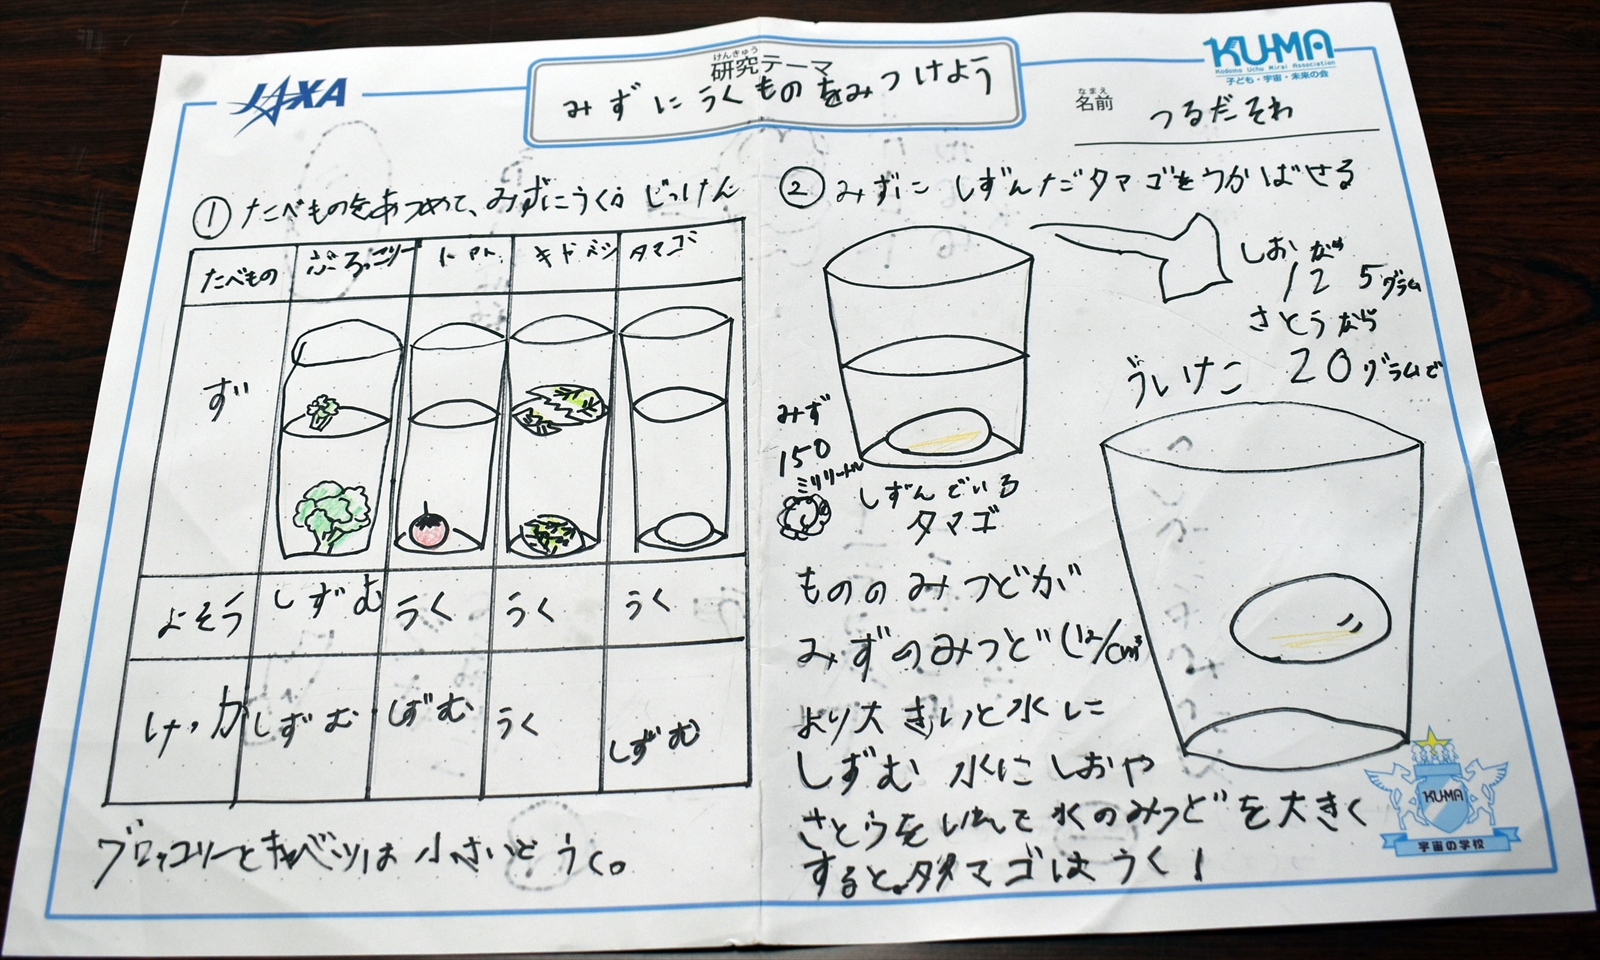 JAXA
けんきゅう
研究テーマ
みずにうくものをみつけよう
KU-MA
Kodomo Uchu Mirai Association
子ども・宇宙・未来の会
なまえ
名前
つるだそわ
① たべものをあつめて、みずにうくか じっけん
たべもの ぶろっこりー トマト キャベツ タマゴ
ず
よそう しずむ うく うく うく
けっか しずむ しずむ うく しずむ
ブロッコリーとキャベツは 小さいと うく。
② みずに しずんだタマゴをうかばせる
しおなら
12 5グラム
さとうなら
20グラムで
みず
150
ミリリートル
しずんでいる
タマゴ
もののみつどが
みずのみつど
より大きいと水に
しずむ 水にしおや
さとうをいれて水のみつどを大きく
すると タマゴはうく!
KU-MA
宇宙の学校